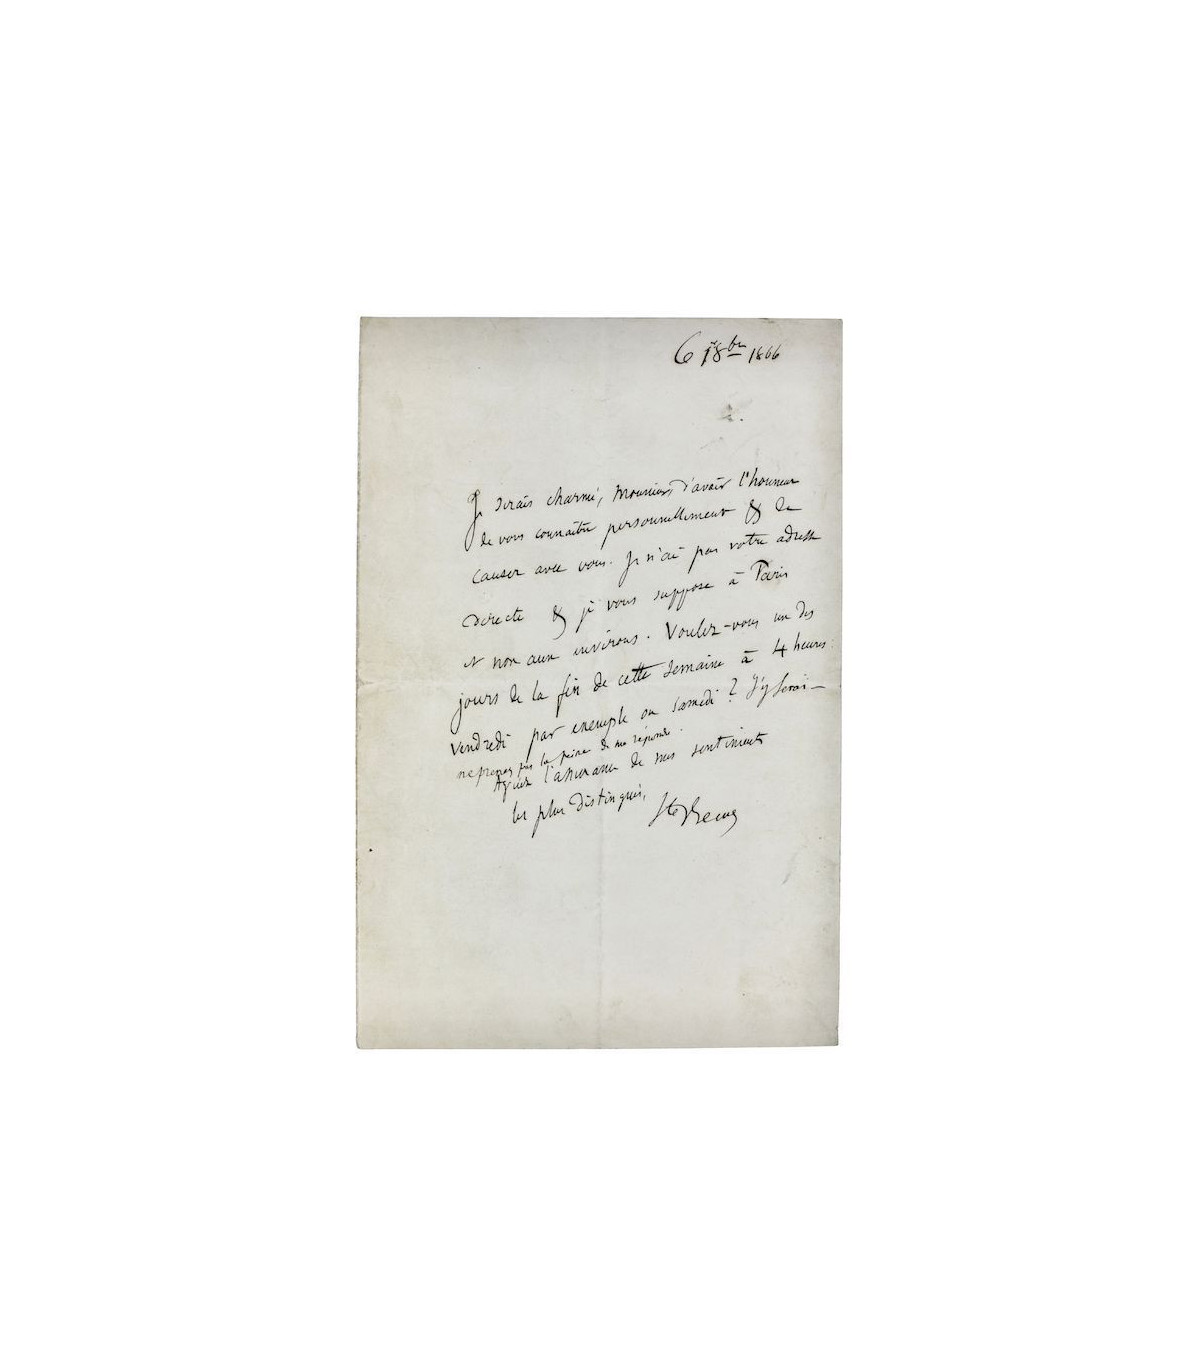 6 8bre 1866
Je serais charmé, Monsieur, d'avoir l'honneur
de vous connaître personnellement & de
causer avec vous. Je n'ai pas votre adresse
directe & je vous suppose à Paris
et non aux environs. Voulez-vous un des
jours de la fin de cette semaine à 4 heures :
Vendredi par exemple ou samedi ? J'y serai —
ne prenez pas la peine de me répondre.
Agréez l'assurance de mes sentiments
les plus distingués,
Ste Beuve